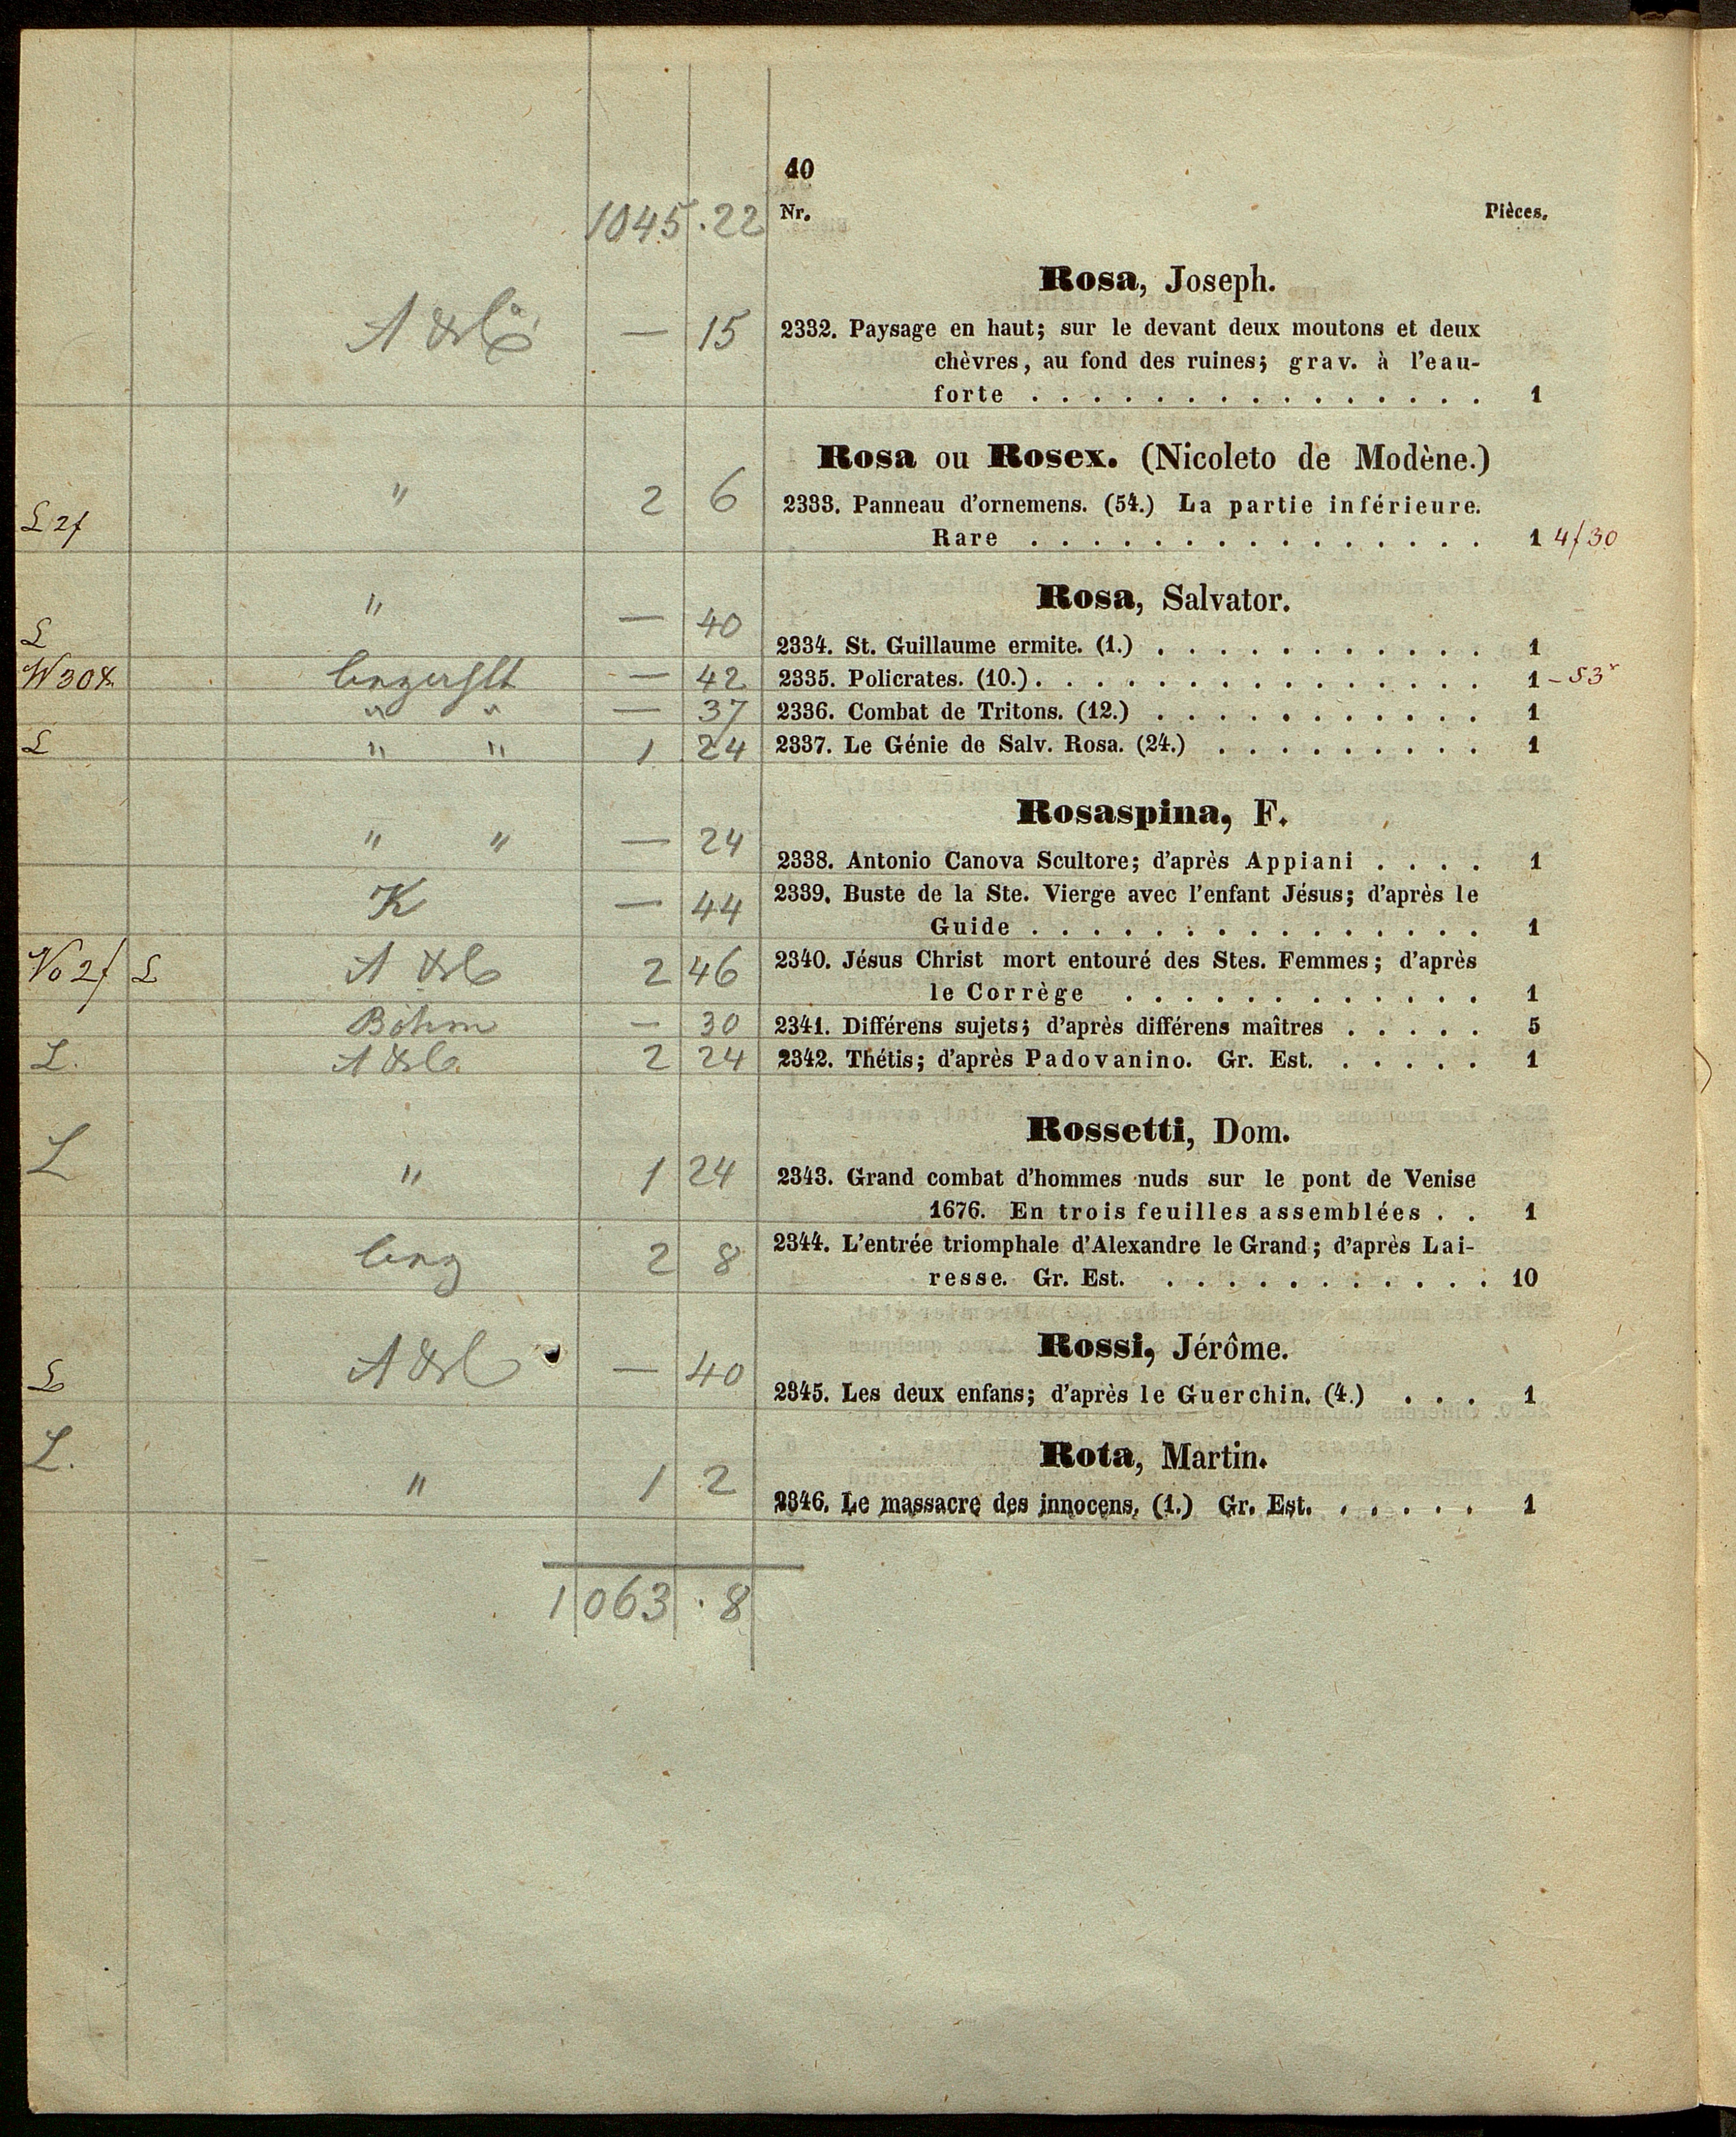 40
1045 . 22 Nr. Pièces.
Rosa, Joseph.
— 15 2332. Paysage en haut; sur le devant deux moutons et deux
chèvres, au fond des ruines; grav. à l'eau-
forte . . . . . . . . . . . . . . . 1
Rosa ou Rosex. (Nicoleto de Modène.)
L 2f " 2 6 2333. Panneau d'ornemens. (54.) La partie inférieure.
Rare . . . . . . . . . . . . . . . 1 4f30
Rosa, Salvator.
L " — 40 2334. St. Guillaume ermite. (1.) . . . . . . . . . . . 1
W 30x — 42 2335. Policrates. (10.) . . . . . . . . . . . . . . . 1 - 53x
" " — 37 2336. Combat de Tritons. (12.) . . . . . . . . . . . 1
L " " 1 24 2337. Le Génie de Salv. Rosa. (24.) . . . . . . . . . 1
Rosaspina, F.
" " — 24 2338. Antonio Canova Scultore; d'après Appiani . . . . 1
K — 44 2339. Buste de la Ste. Vierge avec l'enfant Jésus; d'après le
Guide . . . . . . . . . . . . . . . 1
No 2f L 2 46 2340. Jésus Christ mort entouré des Stes. Femmes; d'après
le Corrège . . . . . . . . . . . . 1
Böhm — 30 2341. Différens sujets; d'après différens maîtres . . . . . 5
L. 2 24 2342. Thétis; d'après Padovanino. Gr. Est. . . . . . 1
Rossetti, Dom.
L " 1 24 2343. Grand combat d'hommes nuds sur le pont de Venise
1676. En trois feuilles assemblées . . 1
2 8 2344. L'entrée triomphale d'Alexandre le Grand; d'après Lai-
resse. Gr. Est. . . . . . . . . . . . 10
Rossi, Jérôme.
L — 40 2345. Les deux enfans; d'après le Guerchin. (4.) . . . 1
Rota, Martin.
L. " 1 2 2346. Le massacre des innocens, (1.) Gr. Est. . . . . . 1
1063 . 8